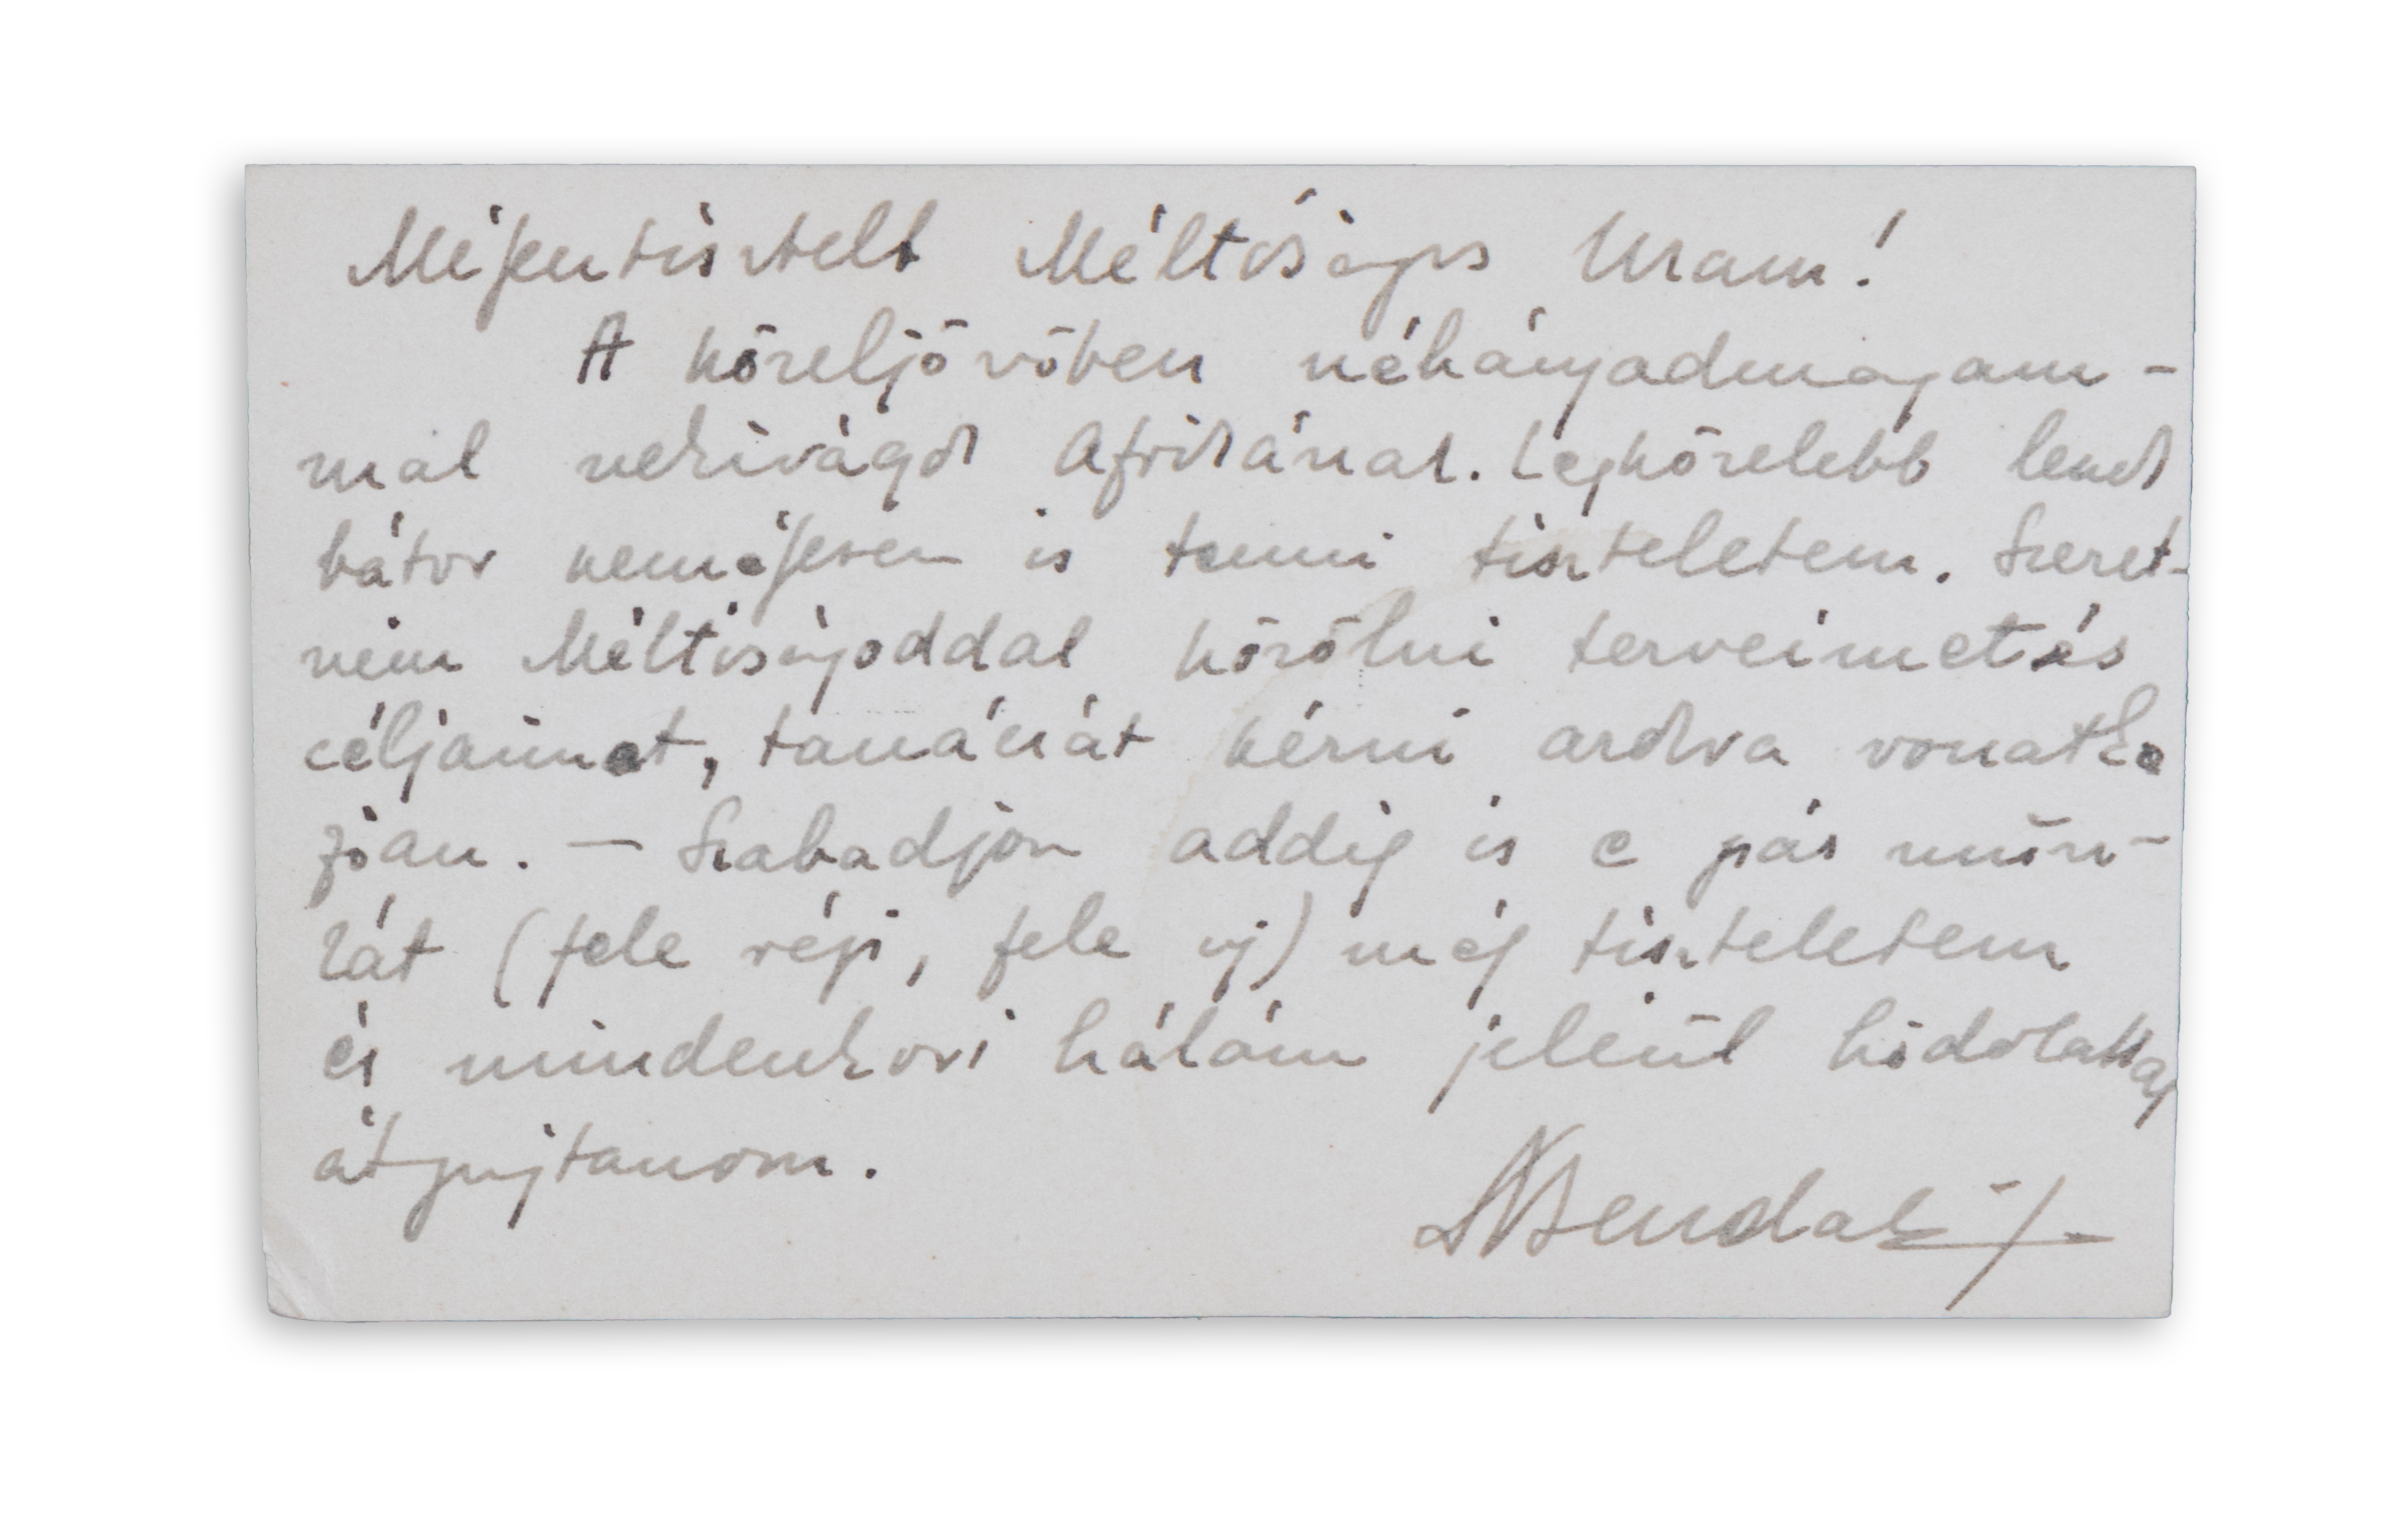 Mélyentisztelt Méltóságos Uram!
A közeljövőben néhányadmagam-
mal nekivágok Afrikának. Legközelebb leszek
bátor személyesen is tenni tiszteletem. Szeret-
ném Méltóságoddal közölni terveimet és
céljaimat, tanácsát kérni azokra vonatko
zóan. – Szabadjon addig is e pár mun-
kát (fele régi, fele uj) még tiszteletem
és mindenkori hálám jeléül hódolattal
átnyujtanom.